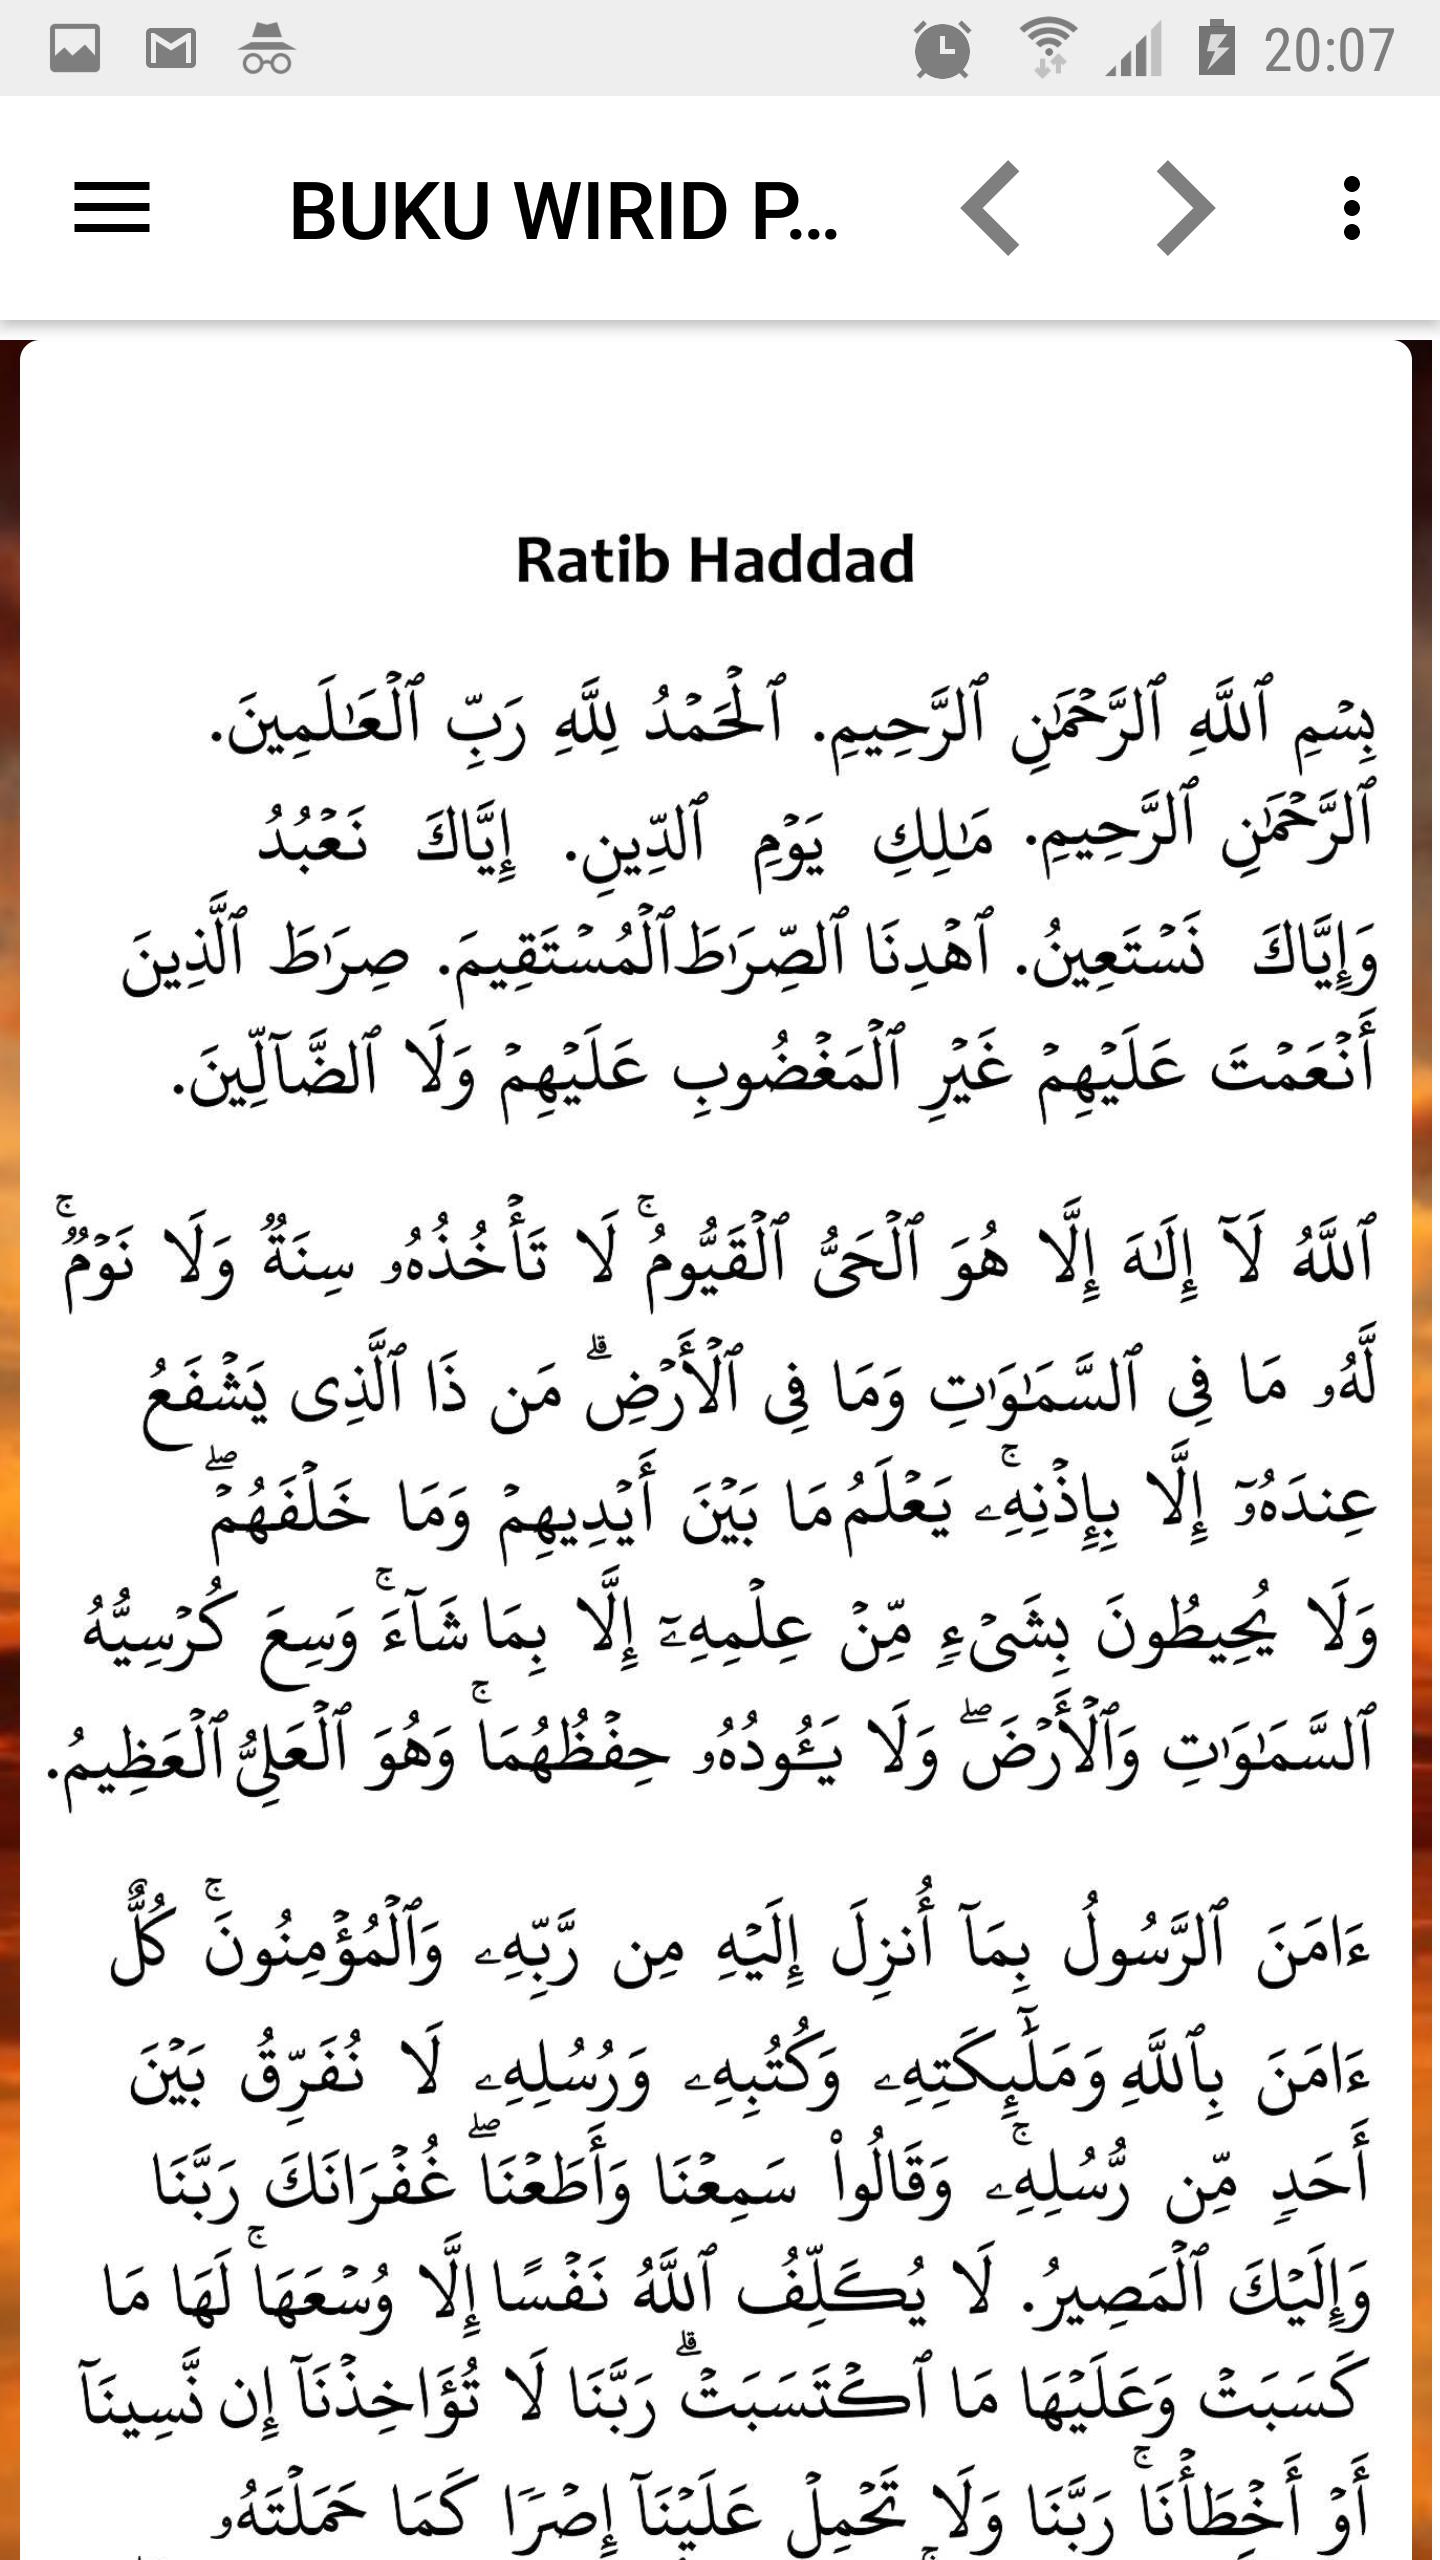 20:07
BUKU WIRID P...
Ratib Haddad
بِسۡمِ ٱللَّهِ ٱلرَّحۡمَٰنِ ٱلرَّحِيمِ. ٱلۡحَمۡدُ لِلَّهِ رَبِّ ٱلۡعَٰلَمِينَ.
ٱلرَّحۡمَٰنِ ٱلرَّحِيمِ. مَٰلِكِ يَوۡمِ ٱلدِّينِ. إِيَّاكَ نَعۡبُدُ
وَإِيَّاكَ نَسۡتَعِينُ. ٱهۡدِنَا ٱلصِّرَٰطَ ٱلۡمُسۡتَقِيمَ. صِرَٰطَ ٱلَّذِينَ
أَنۡعَمۡتَ عَلَيۡهِمۡ غَيۡرِ ٱلۡمَغۡضُوبِ عَلَيۡهِمۡ وَلَا ٱلضَّآلِّينَ.
ٱللَّهُ لَآ إِلَٰهَ إِلَّا هُوَ ٱلۡحَىُّ ٱلۡقَيُّومُۚ لَا تَأۡخُذُهُۥ سِنَةٞ وَلَا نَوۡمٞۚ
لَّهُۥ مَا فِى ٱلسَّمَٰوَٰتِ وَمَا فِى ٱلۡأَرۡضِۗ مَن ذَا ٱلَّذِى يَشۡفَعُ
عِندَهُۥٓ إِلَّا بِإِذۡنِهِۦۚ يَعۡلَمُ مَا بَيۡنَ أَيۡدِيهِمۡ وَمَا خَلۡفَهُمۡۖ
وَلَا يُحِيطُونَ بِشَىۡءٖ مِّنۡ عِلۡمِهِۦٓ إِلَّا بِمَا شَآءَۚ وَسِعَ كُرۡسِيُّهُ
ٱلسَّمَٰوَٰتِ وَٱلۡأَرۡضَۖ وَلَا يَـُٔودُهُۥ حِفۡظُهُمَاۚ وَهُوَ ٱلۡعَلِىُّ ٱلۡعَظِيمُ.
ءَامَنَ ٱلرَّسُولُ بِمَآ أُنزِلَ إِلَيۡهِ مِن رَّبِّهِۦ وَٱلۡمُؤۡمِنُونَۚ كُلٌّ
ءَامَنَ بِٱللَّهِ وَمَلَٰٓئِكَتِهِۦ وَكُتُبِهِۦ وَرُسُلِهِۦ لَا نُفَرِّقُ بَيۡنَ
أَحَدٖ مِّن رُّسُلِهِۦۚ وَقَالُواْ سَمِعۡنَا وَأَطَعۡنَاۖ غُفۡرَانَكَ رَبَّنَا
وَإِلَيۡكَ ٱلۡمَصِيرُ. لَا يُكَلِّفُ ٱللَّهُ نَفۡسًا إِلَّا وُسۡعَهَاۚ لَهَا مَا
كَسَبَتۡ وَعَلَيۡهَا مَا ٱكۡتَسَبَتۡۗ رَبَّنَا لَا تُؤَاخِذۡنَآ إِن نَّسِينَآ
أَوۡ أَخۡطَأۡنَاۚ رَبَّنَا وَلَا تَحۡمِلۡ عَلَيۡنَآ إِصۡرٗا كَمَا حَمَلۡتَهُۥ